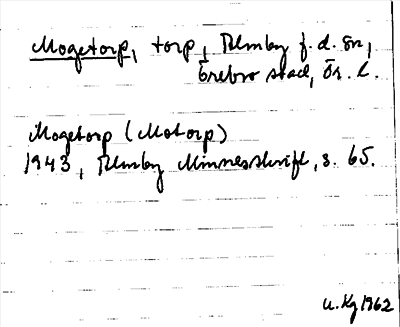 Mogetorp, torp, Almby f.d. sn,
Örebro stad, Ör. l.
Mogetorp (Motorp)
1943, Almby Minnesskrift, s. 65.
U. Kg 1962